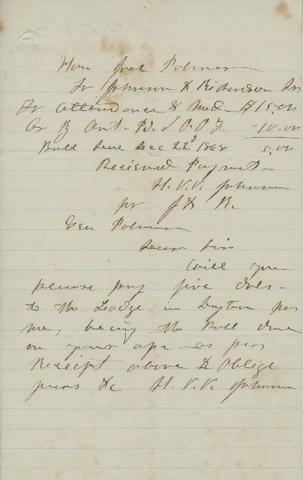 Hon Joel Palmer
To Johnson & Richardson Drs
To Attendance & Med. $15.00
Cr By Amt. Pd I.O.O.F. 10.00
Ball Due Dec 22d 1868 5.00
Received Payment
H. V. V. Johnson
for J & R.
Gen Palmer
Dear Sir
Will you
please pay five dols-
to the Lodge in Dayton for
me, being the Ball due
on your a/c as per
Receipt above & Oblige
yours &c H. V. V. Johnson